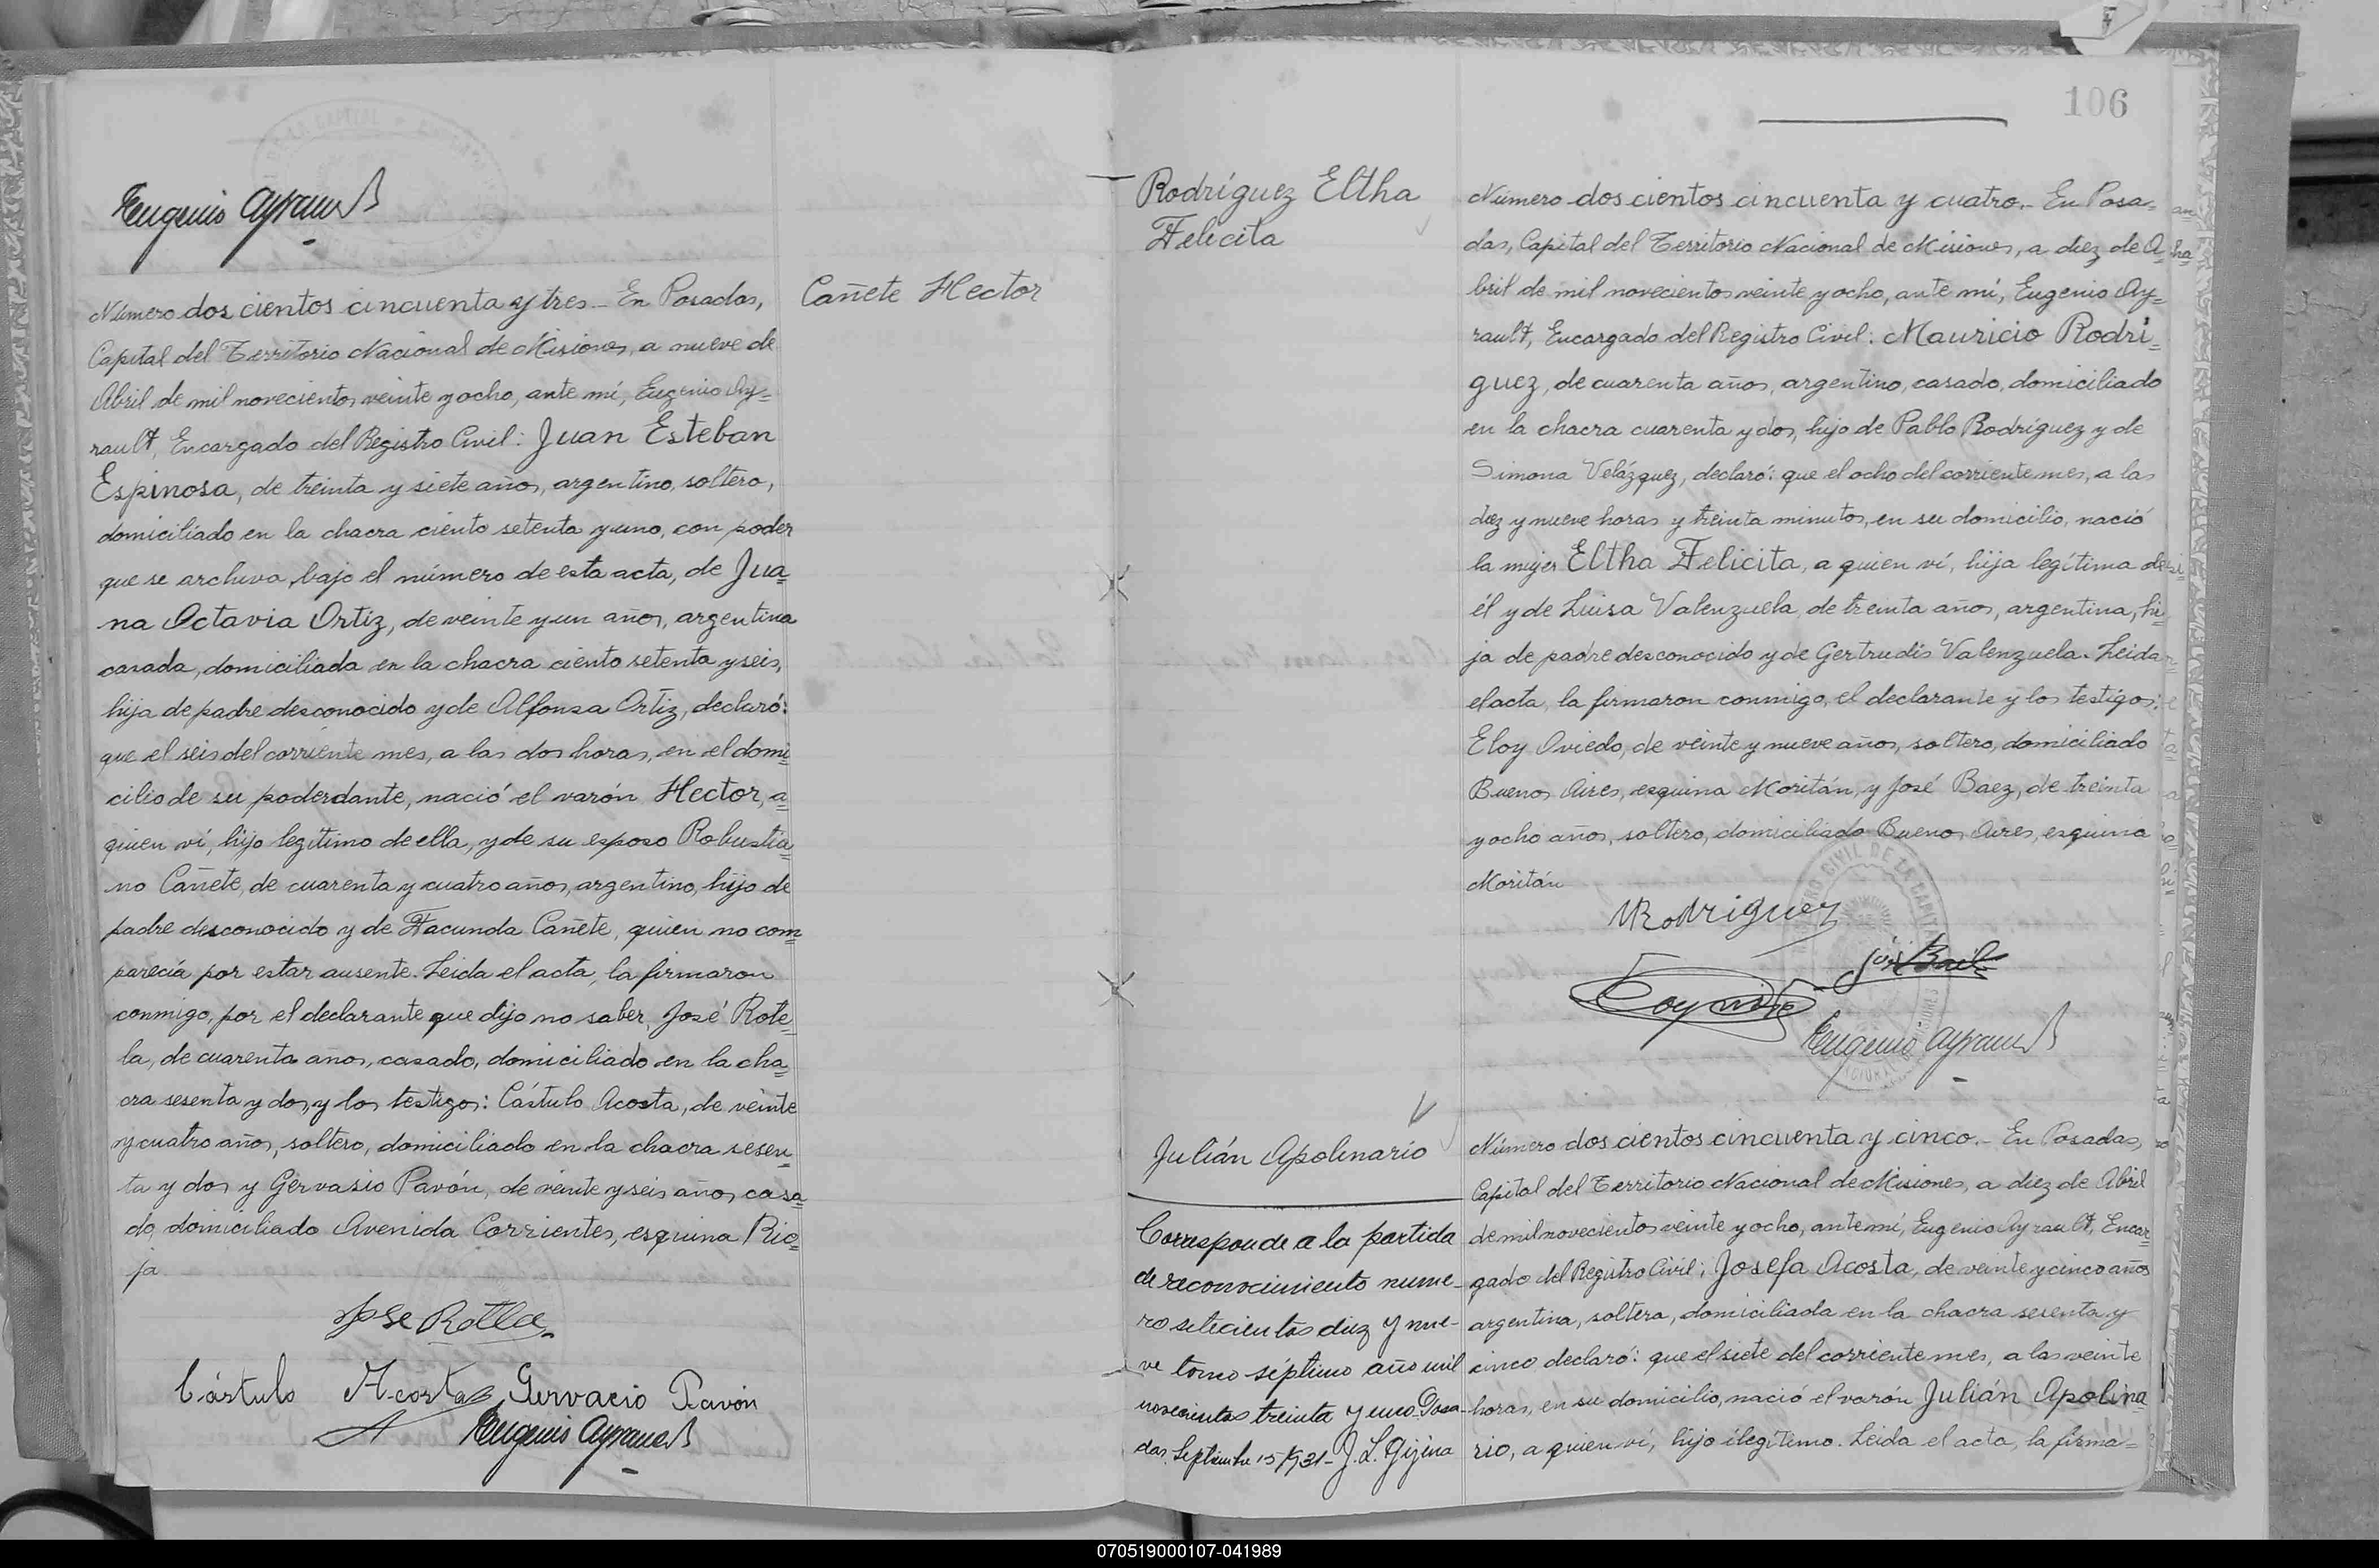 Eugenio Ayrault
Número dos cientos cincuenta y tres - En Posadas,
Capital del Territorio Nacional de Misiones, a nueve de
Abril de mil novecientos veinte y ocho, ante mí, Eugenio Ay=
rault, Encargado del Registro Civil: Juan Esteban
Espinosa, de treinta y siete años, argentino, soltero,
domiciliado en la chacra ciento setenta y uno, con poder
que se archiva, bajo el número de esta acta, de Jua=
na Octavia Ortiz, de veinte y un años, argentina
casada, domiciliada en la chacra ciento setenta y seis,
hija de padre desconocido y de Alfonsa Ortiz, declaró:
que el seis del corriente mes, a las dos horas, en el domi=
cilio de su poderdante, nació el varón Hector, a=
quien ví, hijo legítimo de ella, y de su esposo Robustia=
no Cañete, de cuarenta y cuatro años, argentino, hijo de
padre desconocido y de Facunda Cañete, quien no com=
parecía por estar ausente. Leida el acta, la firmaron
conmigo, por el declarante que dijo no saber, José Rote=
la, de cuarenta años, casado, domiciliado en la cha=
cra sesenta y dos, y los testigos: Cástulo Acosta, de veinte
y cuatro años, soltero, domiciliado en la chacra sesen=
ta y dos y Gervasio Pavón, de veinte y seis años, casa=
do, domiciliado Avenida Corrientes, esquina Rio=
ja
Jose Rotela
Cástulo Acosta Gervacio Pavón
Eugenio Ayrault
Cañete Hector
106
Rodríguez Eltha
Felicita
Número dos cientos cincuenta y cuatro.- En Posa=
das, Capital del Territorio Nacional de Misiones, a diez de A=
bril de mil novecientos veinte y ocho, ante mí, Eugenio Ay=
rault, Encargado del Registro Civil: Mauricio Rodrí=
guez, de cuarenta años, argentino, casado, domiciliado
en la chacra cuarenta y dos, hijo de Pablo Rodríguez y de
Simona Velázquez, declaró: que el ocho del corriente mes, a las
diez y nueve horas y treinta minutos, en su domicilio, nació
la mujer Eltha Felicita, a quien ví, hija legítima de
él y de Luisa Valenzuela, de treinta años, argentina, hi=
ja de padre desconocido y de Gertrudis Valenzuela. Leida
el acta, la firmaron conmigo, el declarante y los testigos:
Eloy Oviedo, de veinte y nueve años, soltero, domiciliado
Buenos Aires, esquina Moritán, y José Baez, de treinta
y ocho años, soltero, domiciliado Buenos Aires, esquina
Moritán
MRodriguez
José Baez
Eugenio Ayrault
Julián Apolinario
Corresponde a la partida
de reconocimiento nume-
ro setecientos diez y nue-
ve tomo séptimo año mil
novecientos treinta y uno. Posa-
das, Septiembre 15/931- J. L. Gijena
Número dos cientos cincuenta y cinco.- En Posadas,
Capital del Territorio Nacional de Misiones, a diez de Abril
de mil novecientos veinte y ocho, ante mí, Eugenio Ayrault, Encar=
gado del Registro Civil; Josefa Acosta, de veinte y cinco años
argentina, soltera, domiciliada en la chacra sesenta y
cinco declaró: que el siete del corriente mes, a las veinte
horas, en su domicilio, nació el varón Julián Apolina
rio, a quien ví, hijo ilegítimo. Leida el acta, la firma=
070519000107-041989